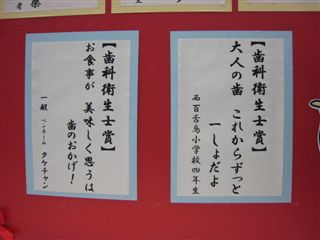 【歯科衛生士賞】
大人の歯 これからずっと
一しょだよ
西百舌鳥小学校四年生
【歯科衛生士賞】
お食事が 美味しく思うは
歯のおかげ！
一般 ペンネーム タケチャン